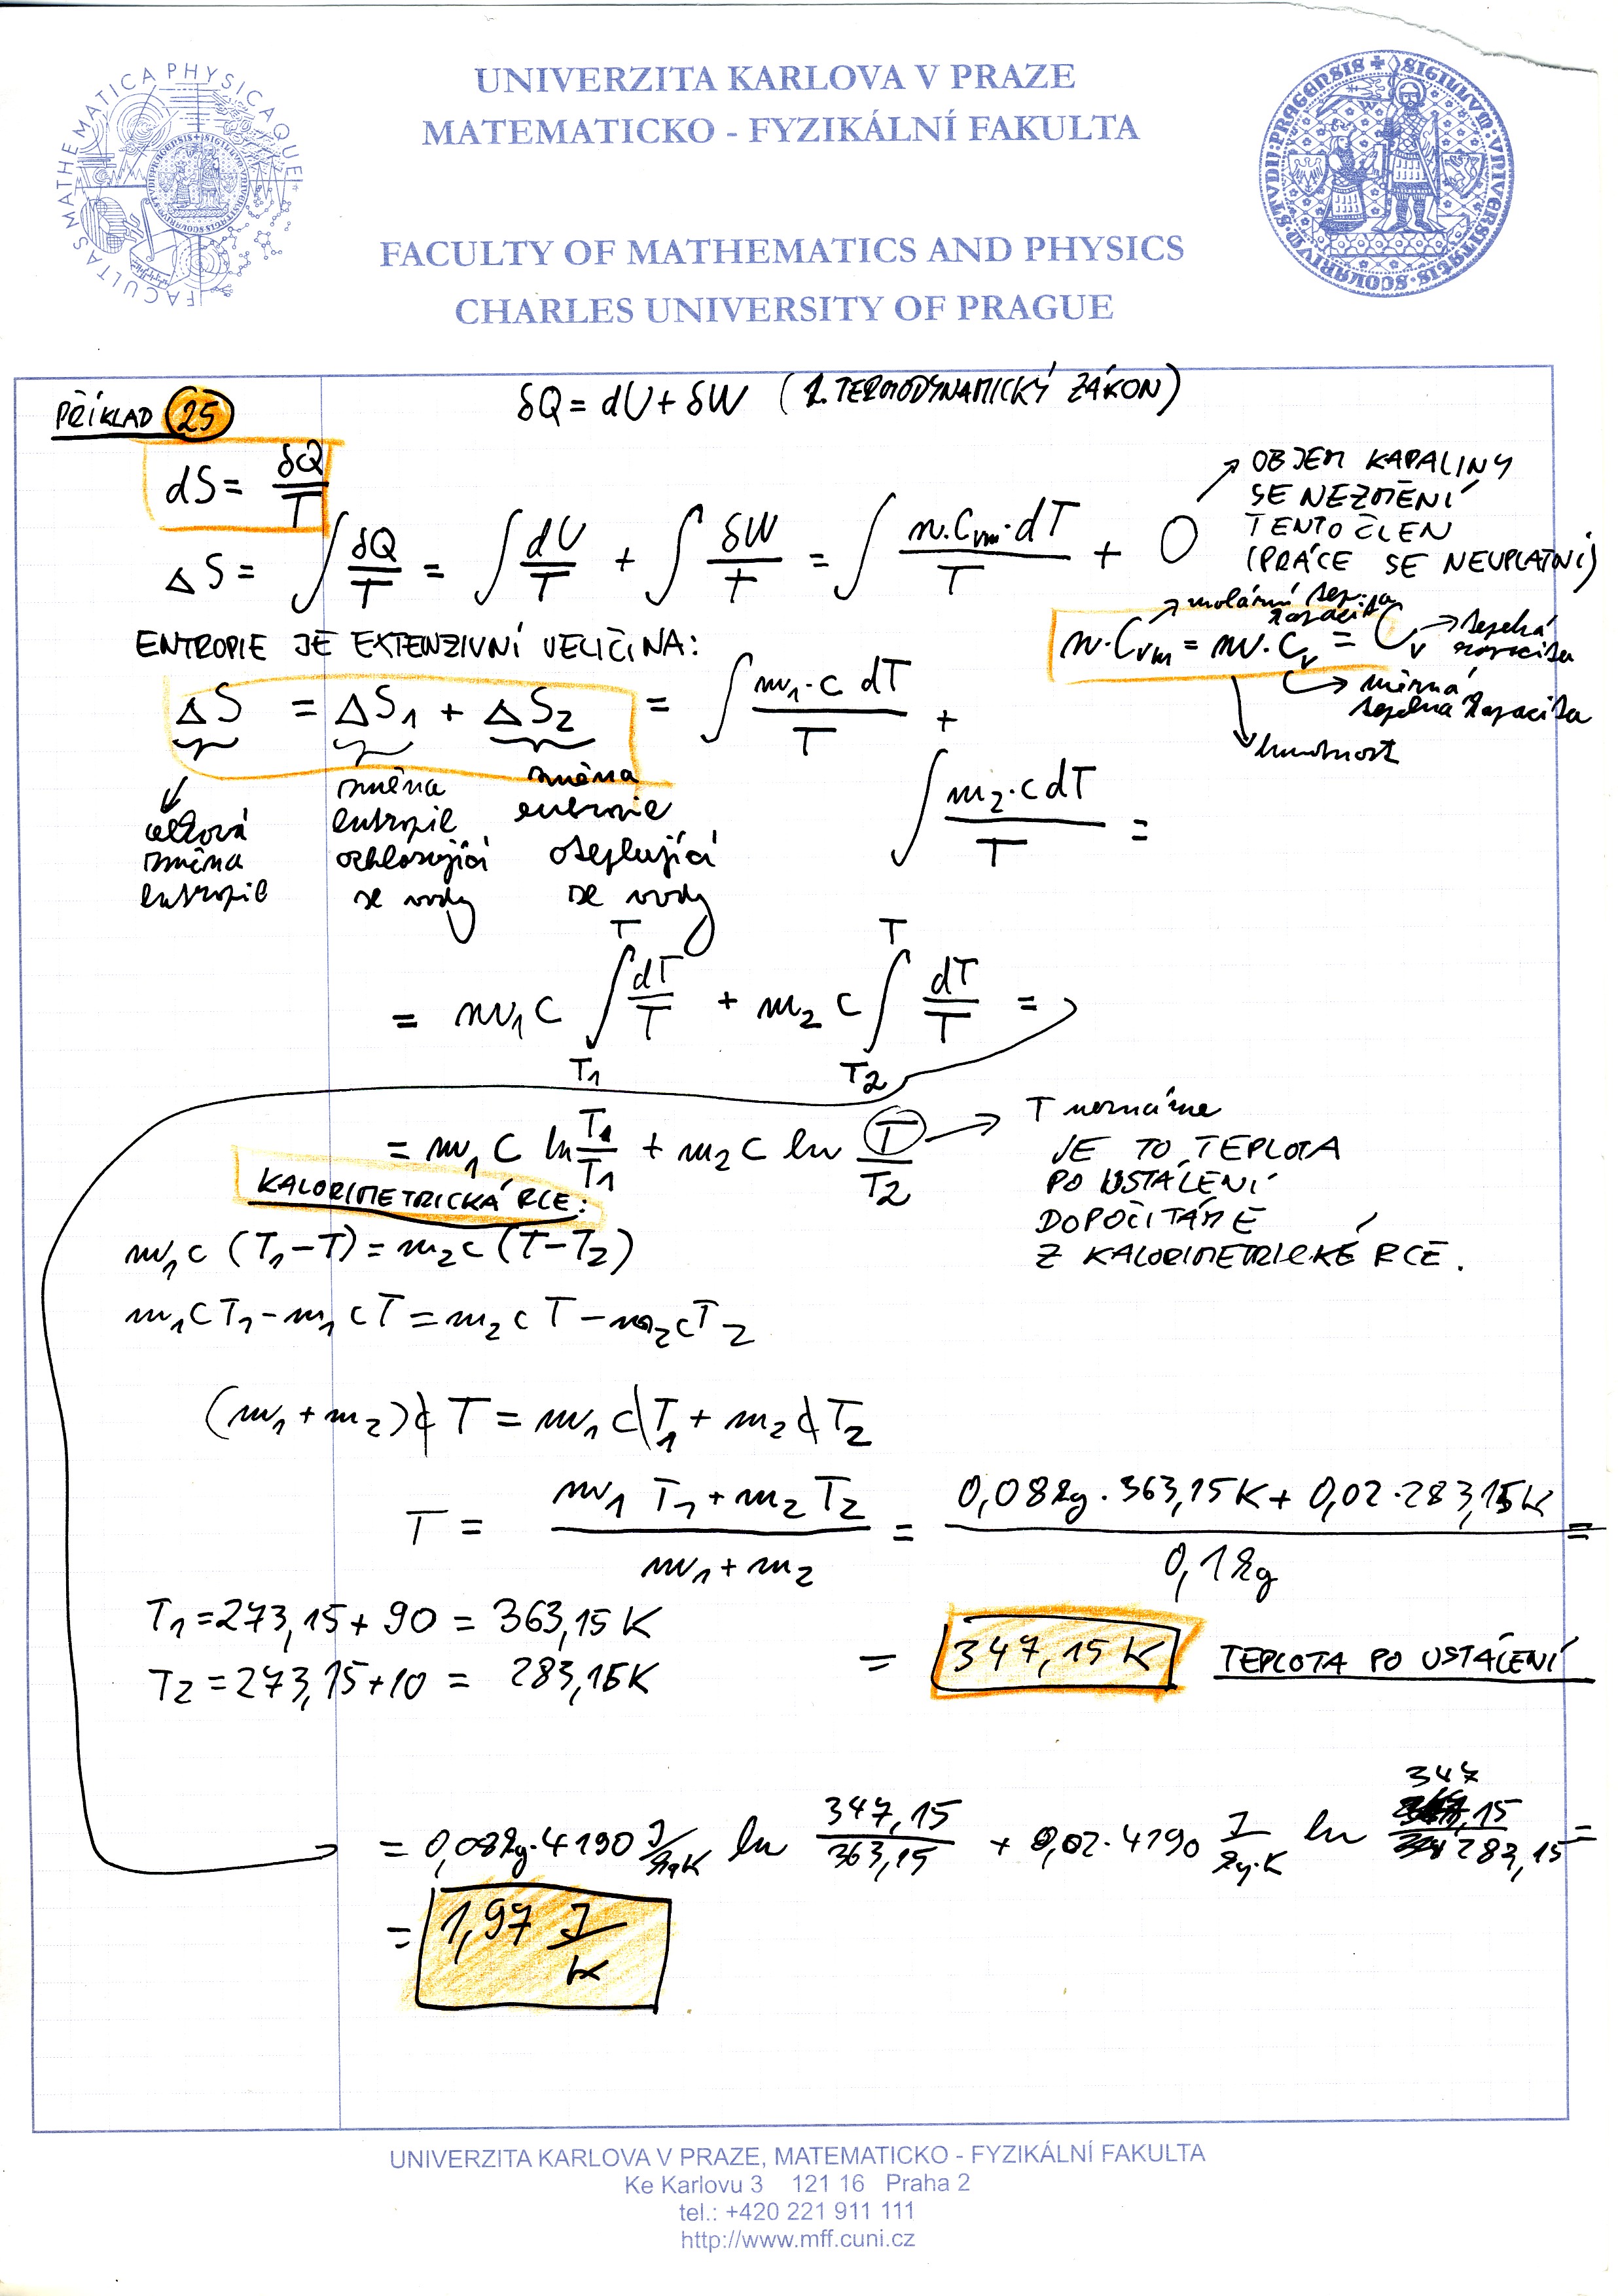 UNIVERZITA KARLOVA V PRAZE
MATEMATICKO - FYZIKÁLNÍ FAKULTA
FACULTY OF MATHEMATICS AND PHYSICS
CHARLES UNIVERSITY OF PRAGUE
FACULTAS MATHEMATICA PHYSICAQUE
PŘÍKLAD 25
δQ = dU + δW (1. TERMODYNAMICKÝ ZÁKON)
dS = δQ/T
ΔS = ∫ δQ/T = ∫ dU/T + ∫ δW/T = ∫ n·Cvm·dT/T + 0
OBJEM KAPALINY
SE NEZMĚNÍ
TENTO ČLEN
(PRÁCE SE NEUPLATNÍ)
ENTROPIE JE EXTENZIVNÍ VELIČINA:
molární tep. kapacita
n·Cvm = m·cv = Cv → tepelná kapacita
měrná
tepelná kapacita
hmotnost
ΔS = ΔS1 + ΔS2 = ∫ m1·c dT/T +
∫ m2·c dT/T =
celková
změna
entropie
změna
entropie
ochlazující
se vody
změna
entropie
oteplující
se vody
= m1 c ∫ T1 T dT/T + m2 c ∫ T2 T dT/T =
= m1 c ln T/T1 + m2 c ln T/T2
T neznáme
JE TO TEPLOTA
PO USTÁLENÍ
DOPOČÍTÁME
Z KALORIMETRICKÉ RCE.
KALORIMETRICKÁ RCE:
m1c (T1-T) = m2c (T-T2)
m1cT1 - m1cT = m2cT - m2cT2
(m1+m2)cT = m1cT1 + m2cT2
T = m1 T1 + m2 T2 / m1 + m2 = 0,08kg·363,15K + 0,02·283,15K / 0,1kg =
T1 = 273,15 + 90 = 363,15 K
T2 = 273,15 + 10 = 283,15K
= 347,15 K TEPLOTA PO USTÁLENÍ
= 0,08kg·4190 J/kgK ln 347,15/363,15 + 0,02·4190 J/kg·K ln 347,15/283,15 =
= 1,97 J/K
UNIVERZITA KARLOVA V PRAZE, MATEMATICKO - FYZIKÁLNÍ FAKULTA
Ke Karlovu 3 121 16 Praha 2
tel.: +420 221 911 111
http://www.mff.cuni.cz